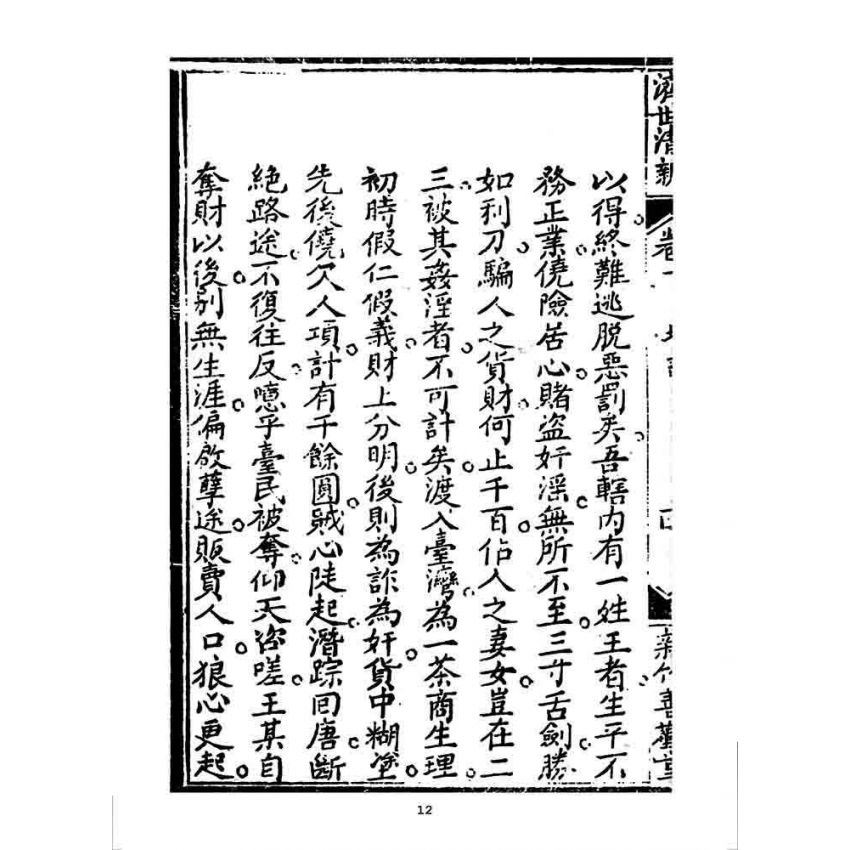 以得終難逃脫惡罰矣吾轄內有一姓王者生平不
務正業僥險居心賭盜奸淫無所不至三寸舌劍勝
如利刀騙人之貨財何止千百佔人之妻女豈在二
三被其姦淫者不可計矣渡入臺灣為一茶商生理
初時假仁假義財上分明後則為詐為奸貨中糊塗
先後僥欠人項計有千餘圓賊心陡起潛踪回唐斷
絕路途不復往反噫乎臺民被奪仰天咨嗟王某自
奪財以後別無生涯偏啟孽途販賣人口狼心更起
12